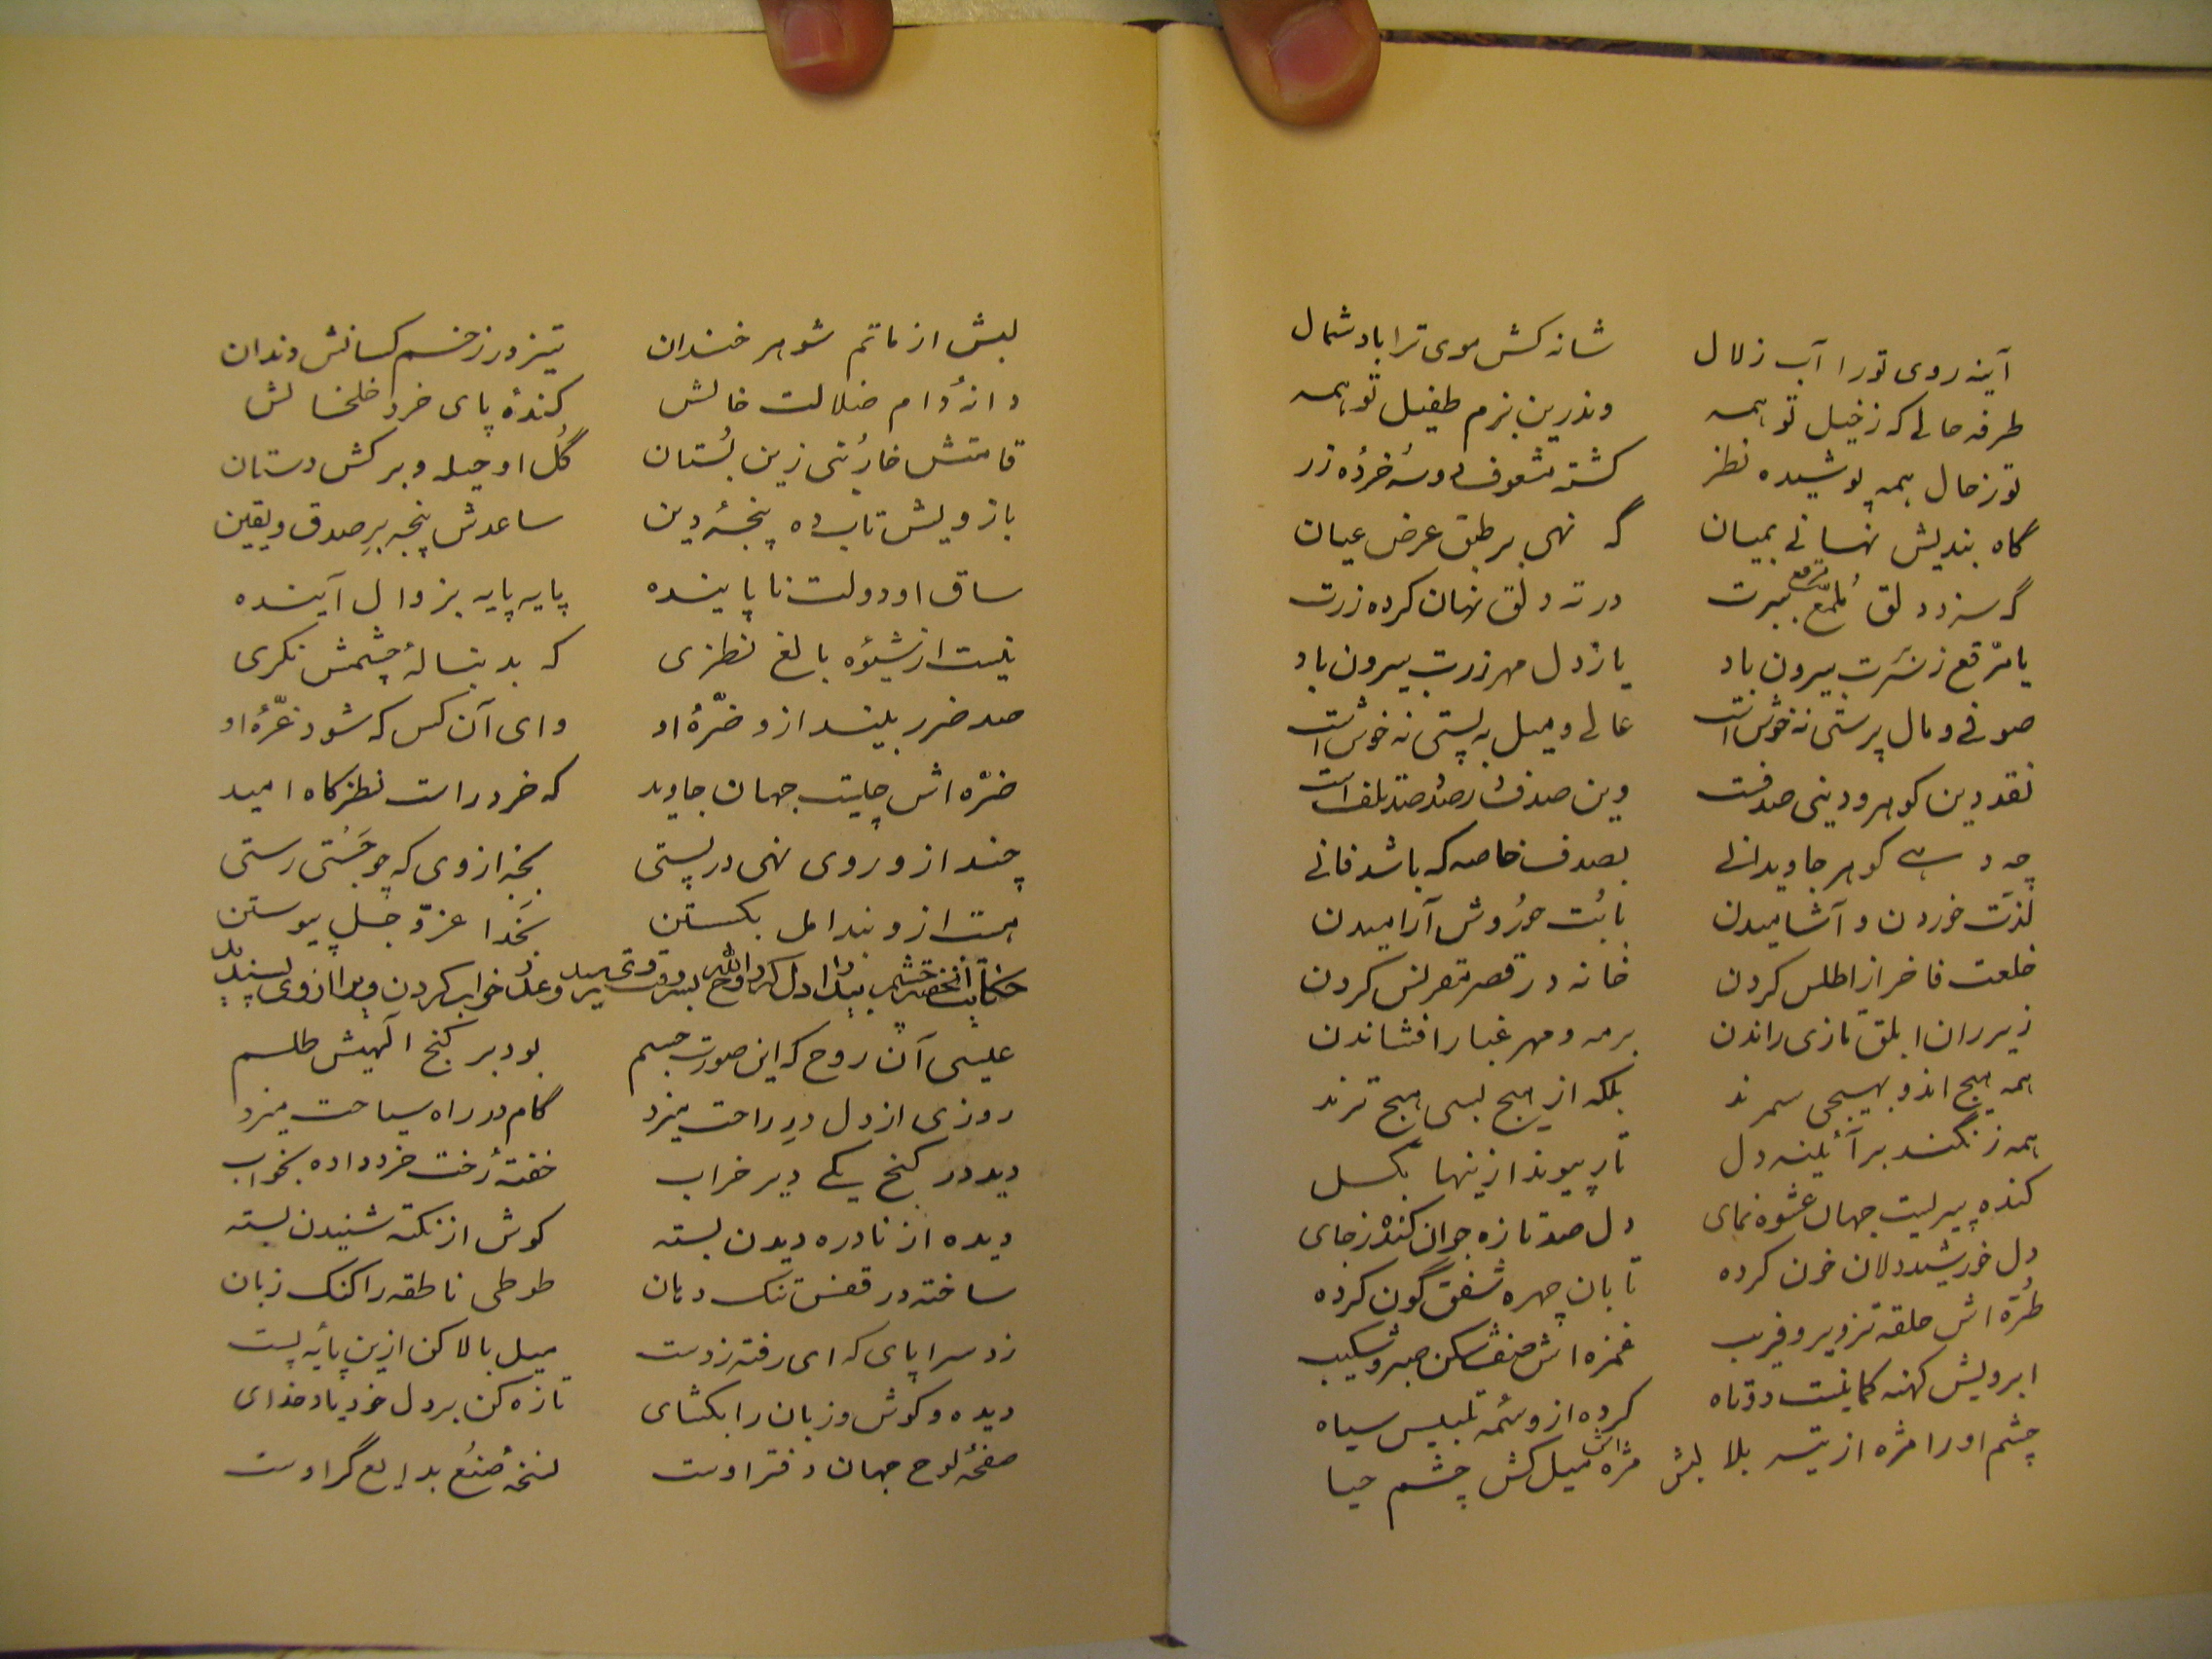 آینه روی تو را آب زلال شانه کش موی ترا باد شمال
طرفه حالی که ز خیل تو همه وندرین بزم طفیل تو همه
تو ز حال همه پوشیده نظر کشته مشعوف دو سه خرده زر
گاه بندیش نهانی بمیان گه نهی بر طبق عرض عیان
گر سزد دلق ملمع ببرت در ته دلق نهان کرده زرت
یا مرقع ز سرت بیرون باد یا ز دل مهر زرت بیرون باد
صوفی و مال پرستی نه خوش است عالی و میل به پستی نه خوش است
نقد دین کوهر و دینی صدفست وین صدف را صدد صد تلف است
چه د هی کوهر جاویدانی بصدف خاصه که باشد فانی
لذت خوردن و آشامیدن با بت حوروش آرامیدن
خلعت فاخر از اطلس کردن خانه در قصر مقرنس کردن
زیر ران ابلق تازی راندن بر مه و مهر غبار افشاندن
همه هیچ اند و بهیچی سمرند بلکه از هیچ بسی هیچ ترند
همه زنگند بر آئینه دل تار پیوند ازینها بکسل
کنده پیریست جهان عشوه نمای دل صد تازه جوان کنده ز جای
دل خورشید دلان خون کرده تا بان چهره شفق گون کرده
طره اش حلقه تزویر و فریب غمزه اش صف شکن صبر و شکیب
ابرویش کهنه کمانیست دوتاه کرده از وسمه تلبیس سیاه
چشم او را مژه از تیر بلا بلش مژه اش میل کش چشم حیا
لبش از ماتم شوهر خندان تیز در زخم کسانش دندان
دانه دام ضلالت خالش کنده پای خرد خلخالش
قامتش خاربنی زین بستان گل او حیله و برکش دستان
بازویش تاب ده پنجه دین ساعدش پنجه بر صدق و یقین
ساق او دولت نا پاینده پایه پایه بزوال آینده
نیست از شیوه بالغ نظری که بدنباله چشمش نکری
صد ضرر بیند از و ضره او وای آن کس که شود غره او
ضره اش چیست جهان جاوید که خرد راست نظرکاه امید
چند از و روی نهی در پستی بجه از وی که چو جستی رستی
همت از و بند امل بکستن بخدا عز و جل پیوستن
عیسی آن روح که این صورت جسم بود بر کنج الهیش طلسم
روزی از دل در راحت میزد گام در راه سیاحت میزد
دید در کنج یکی دیر خراب خفته رخت خرد داده بخواب
دیده از نادره دیدن بسته کوش از نکته شنیدن بسته
ساخته در قفس تنک دهان طوطی ناطقه را کنک زبان
زد سرا پای که ای رفته ز دست میل بالا کن ازین پایه پست
دیده و کوش و زبان را بکشای تازه کن بر دل خود یاد خدای
صفحه لوح جهان دفتر اوست نسخه صنع بدایع گر اوست